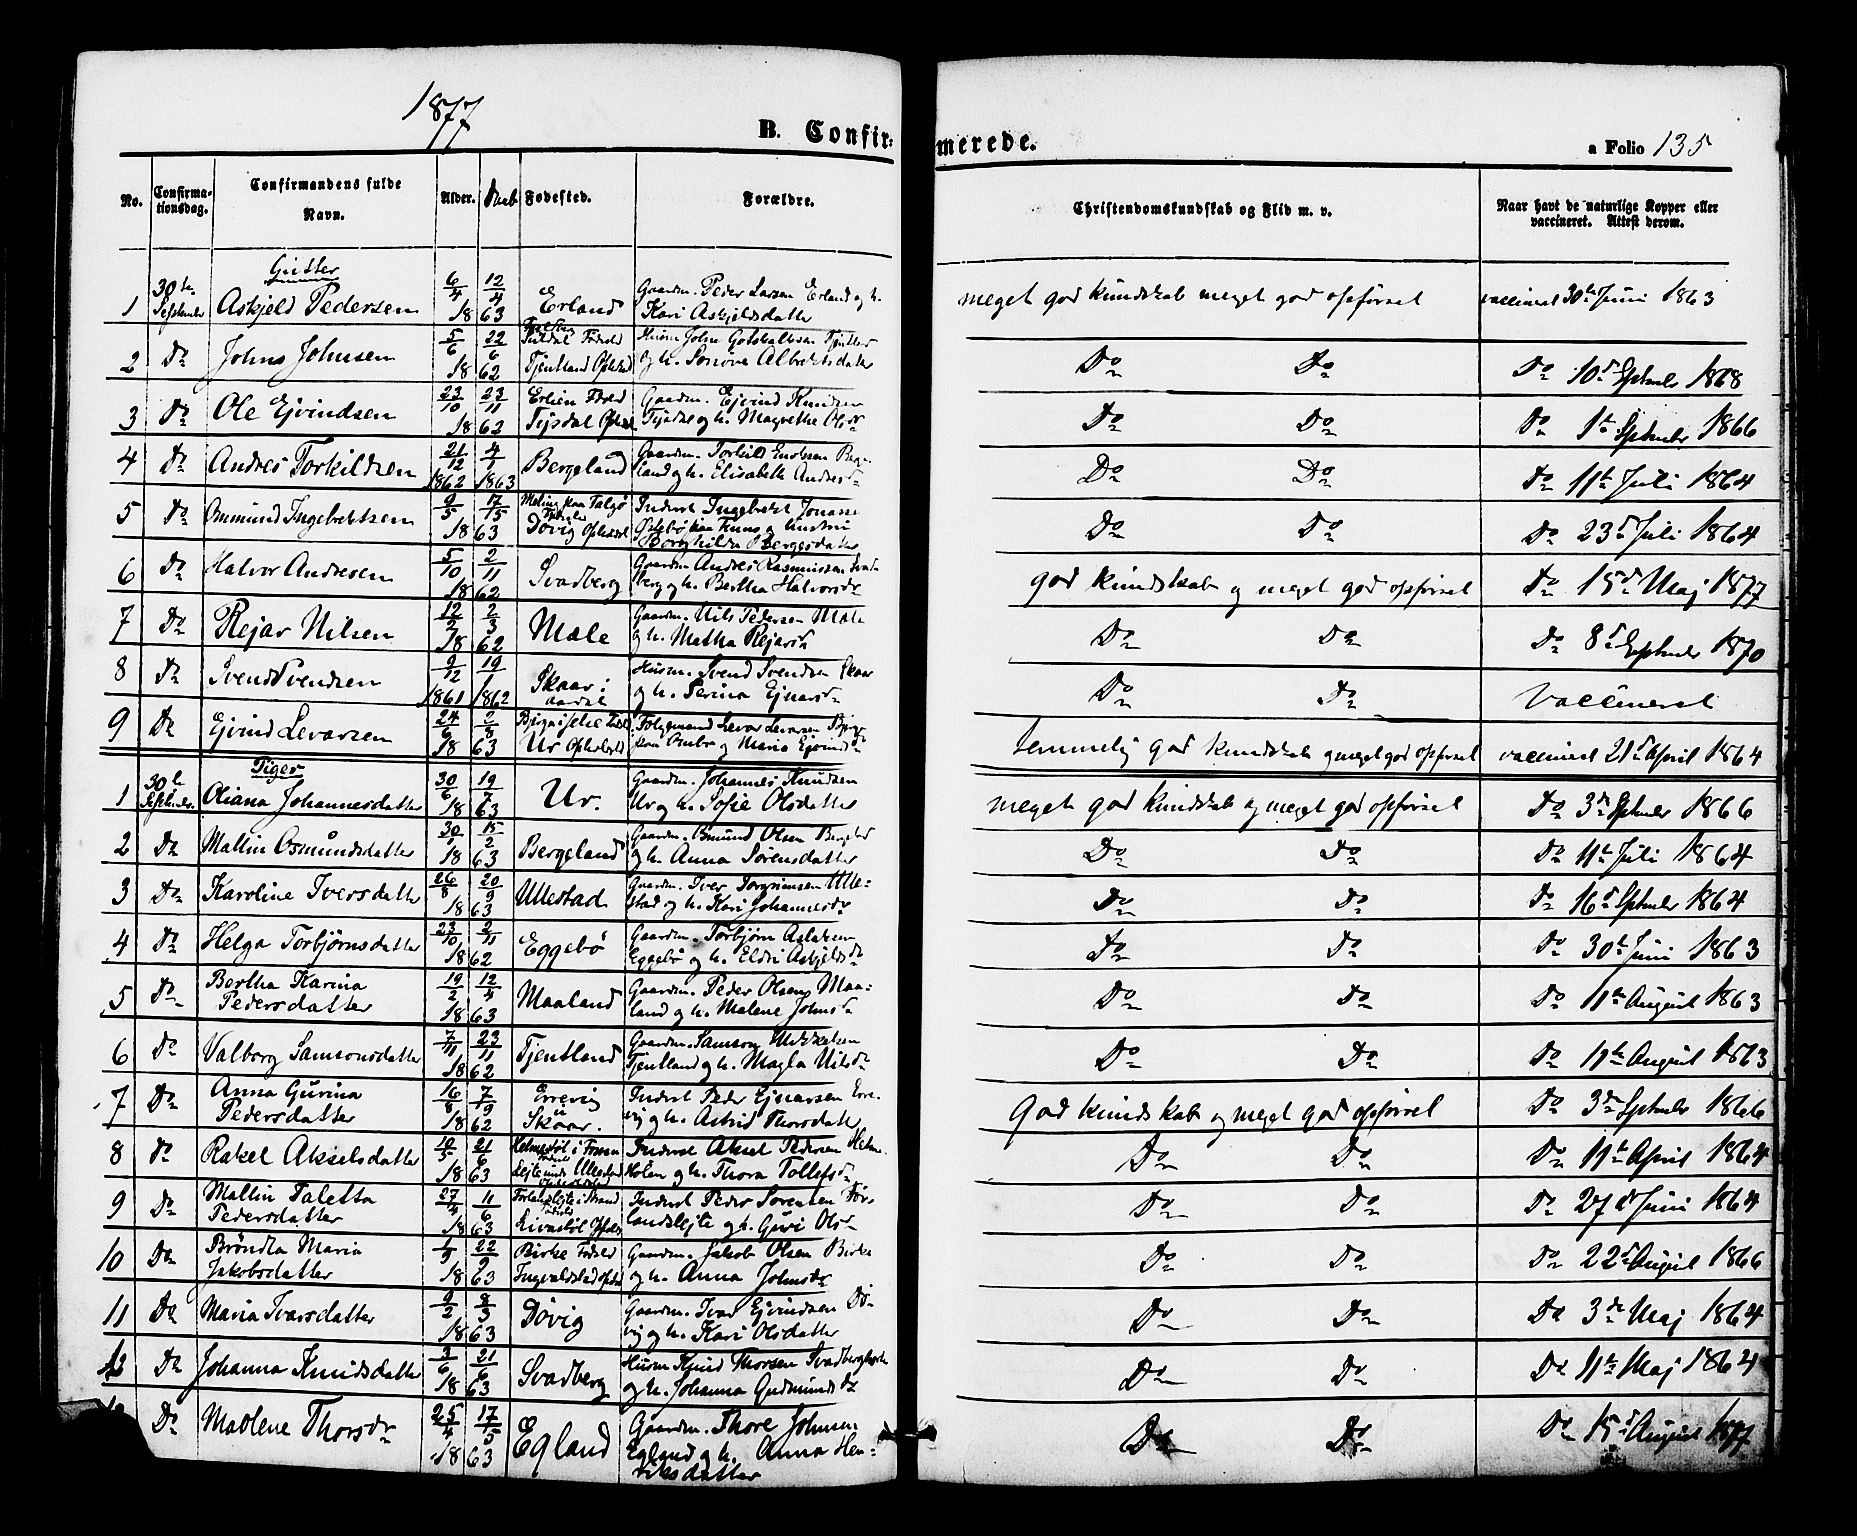 1877
B. Confirmerede.
a Folio 135
No. Confirmationsdag. Confirmandens fulde Navn. Alder. Daab Fødested. Forældre. Christendomskundskab og Flid m. v. Naar havt de naturlige Kopper eller vaccineret. Attest derom.
Gutter
1 30te September Askjeld Pedersen 6/4 1863 12/4 Erland Gaardm. Peder Larsen Erland og h. Kari Askjeldsdatter meget god kundskab meget god opførsel vaccineret 30te Juni 1863
2 Do Johns Johnsen 5/6 1862 22/6 Tjentland Opholdsted Husm. John Gotskalksen og h. Albertsdatter Do Do Do 10d September 1868
3 Do Ole Ejvindsen 23/10 1862 23/11 Fødested Tysdal Gaardm. Ejvind Knudsen Tysdal og h. Magrethe Olsdr Do Do Do 1te September 1866
4 Do Andres Torkildsen 21/12 1862 4/1 1863 Bergeland Gaardm. Torkild Bergeland og h. Elisabeth Andresdr Do Do Do 11te Juli 1864
5 Do Ommund Ingebretsen 9/5 1863 17/5 Døvig Opholdsted Inderst Ingebret og hustru Do Do Do 23d Juli 1864
6 Do Halvor Andresen 5/10 1862 2/11 Svadberg Gaardm. Andres Rasmussen Svadberg og h. Bertha Halvorsdr god kundskab og meget god opførsel Do 15d Maj 1877
7 Do Rejar Nilsen 12/2 1862 2/3 Male Gaardm. Nils Pedersen Male og h. Martha Rejarsdr Do Do Do 8d September 1870
8 Do Svend Svendsen 9/12 1861 19/1 1862 Skaar i Aardal Husm. Svend Svendsen Skaar og h. Serina Ejnarsdr Do Do Vaccineret
9 Do Ejvind Levarsen 24/6 1863 2/8 Ur Opholdssted Levar Levarsen paa Ombo og Maria Ejvindsdr temmelig god kundskab og meget god opførsel vaccineret 21d April 1864
Piger
1 30te September Oliana Johannesdatter 30/6 1863 19/7 Ur. Gaardm. Johannes Knudsen Ur og h. Sofie Olsdatter meget god kundskab og meget god opførsel Do 3de September 1866
2 Do Mallin Osmundsdatter 30/1 1863 15/2 Bergeland Gaardm. Osmund Olsen Bergeland og h. Anna Sørensdatter Do Do Do 11te Juli 1864
3 Do Karoline Iversdatter 26/8 1863 20/9 Ullestad Gaardm. Iver Torgrimsen Ullestad og h. Kari Johannesdr Do Do Do 16d September 1864
4 Do Helga Torbjørnsdatter 23/10 1862 2/11 Eggebø Gaardm. Torbjørn Aslaksen Eggebø og h. Eldri Askjeldsdr Do Do Do 30te Juni 1863
5 Do Bertha Karina Pedersdatter 19/2 1863 12/4 Maaland Gaardm. Peder Olsen Maaland og h. Malene Johnsdr Do Do Do 11te August 1863
6 Do Valborg Samsonsdatter 7/11 1862 23/11 Tjentland Gaardm. Samson Mikkelsen Tjentland og h. Magla Nilsdr Do Do Do 11te August 1863
7 Do Anna Gurina Pedersdatter 16/8 1862 7/9 Errevig Skaar. Inderst Peder Ejnarsen Errevig og h. Astrid Thorsdatter God kundskab og meget god opførsel Do 3de September 1866
8 Do Rakel Akselsdatter 10/5 1863 21/6 Inderst Aksel Pedersen Helmeholen og h. Thora Tollefsdr Do Do Do 11te April 1864
9 Do Mallin Taletta Pedersdatter 27/4 1863 11/6 Inderst Peder Sørensen Førlandslejte og h. Guri Olsdr Do Do Do 27d Juni 1864
10 Do Brøndla Maria Jakobsdatter 1863 22/9 Birke Fødested Gaardm. Jakob Olsen Birke og h. Anna Johnsdr Do Do Do 22d August 1866
11 Do Maria Ivarsdatter 9/2 1863 8/3 Døvig Gaardm. Ivar Ejvindsen Døvig og h. Kari Olsdatter Do Do Do 3de Maj 1864
12 Do Johanna Knudsdatter 3/6 1863 21/6 Svadberg Husm Knud Thorsen og h. Johanna Gudmundsdr Do Do Do 11te Maj 1864
Do Madlene Thorsdr 25/4 1863 17/5 Egland Gaardm. Thore Johnsen Egland og h. Anna Henriksdatter Do Do Do 15d August 1877